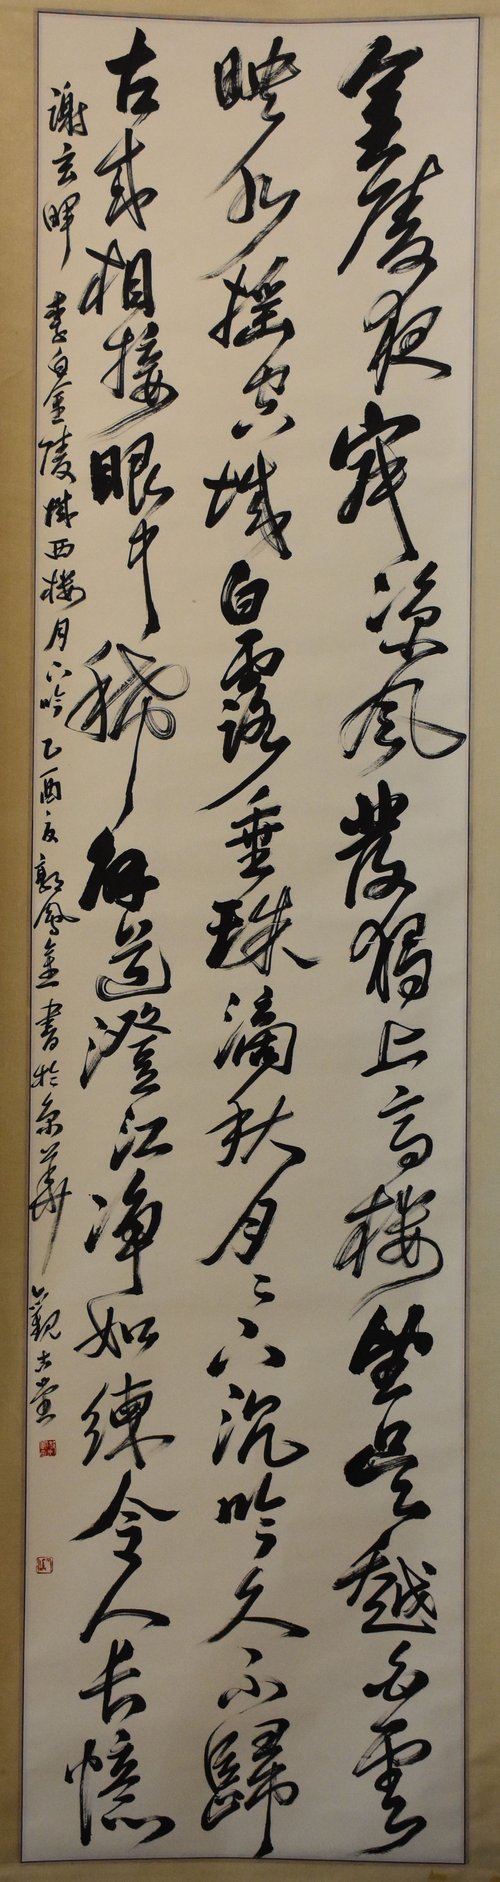 金陵夜寂涼風發獨上高樓望吳越白雲
映水搖空城白露垂珠滴秋月〻下沉吟久不歸
古來相接眼中稀解道澄江淨如練令人長憶
謝玄暉 李白金陵城西樓月下吟 乙酉夏郭鳳金書於京華 觀古堂